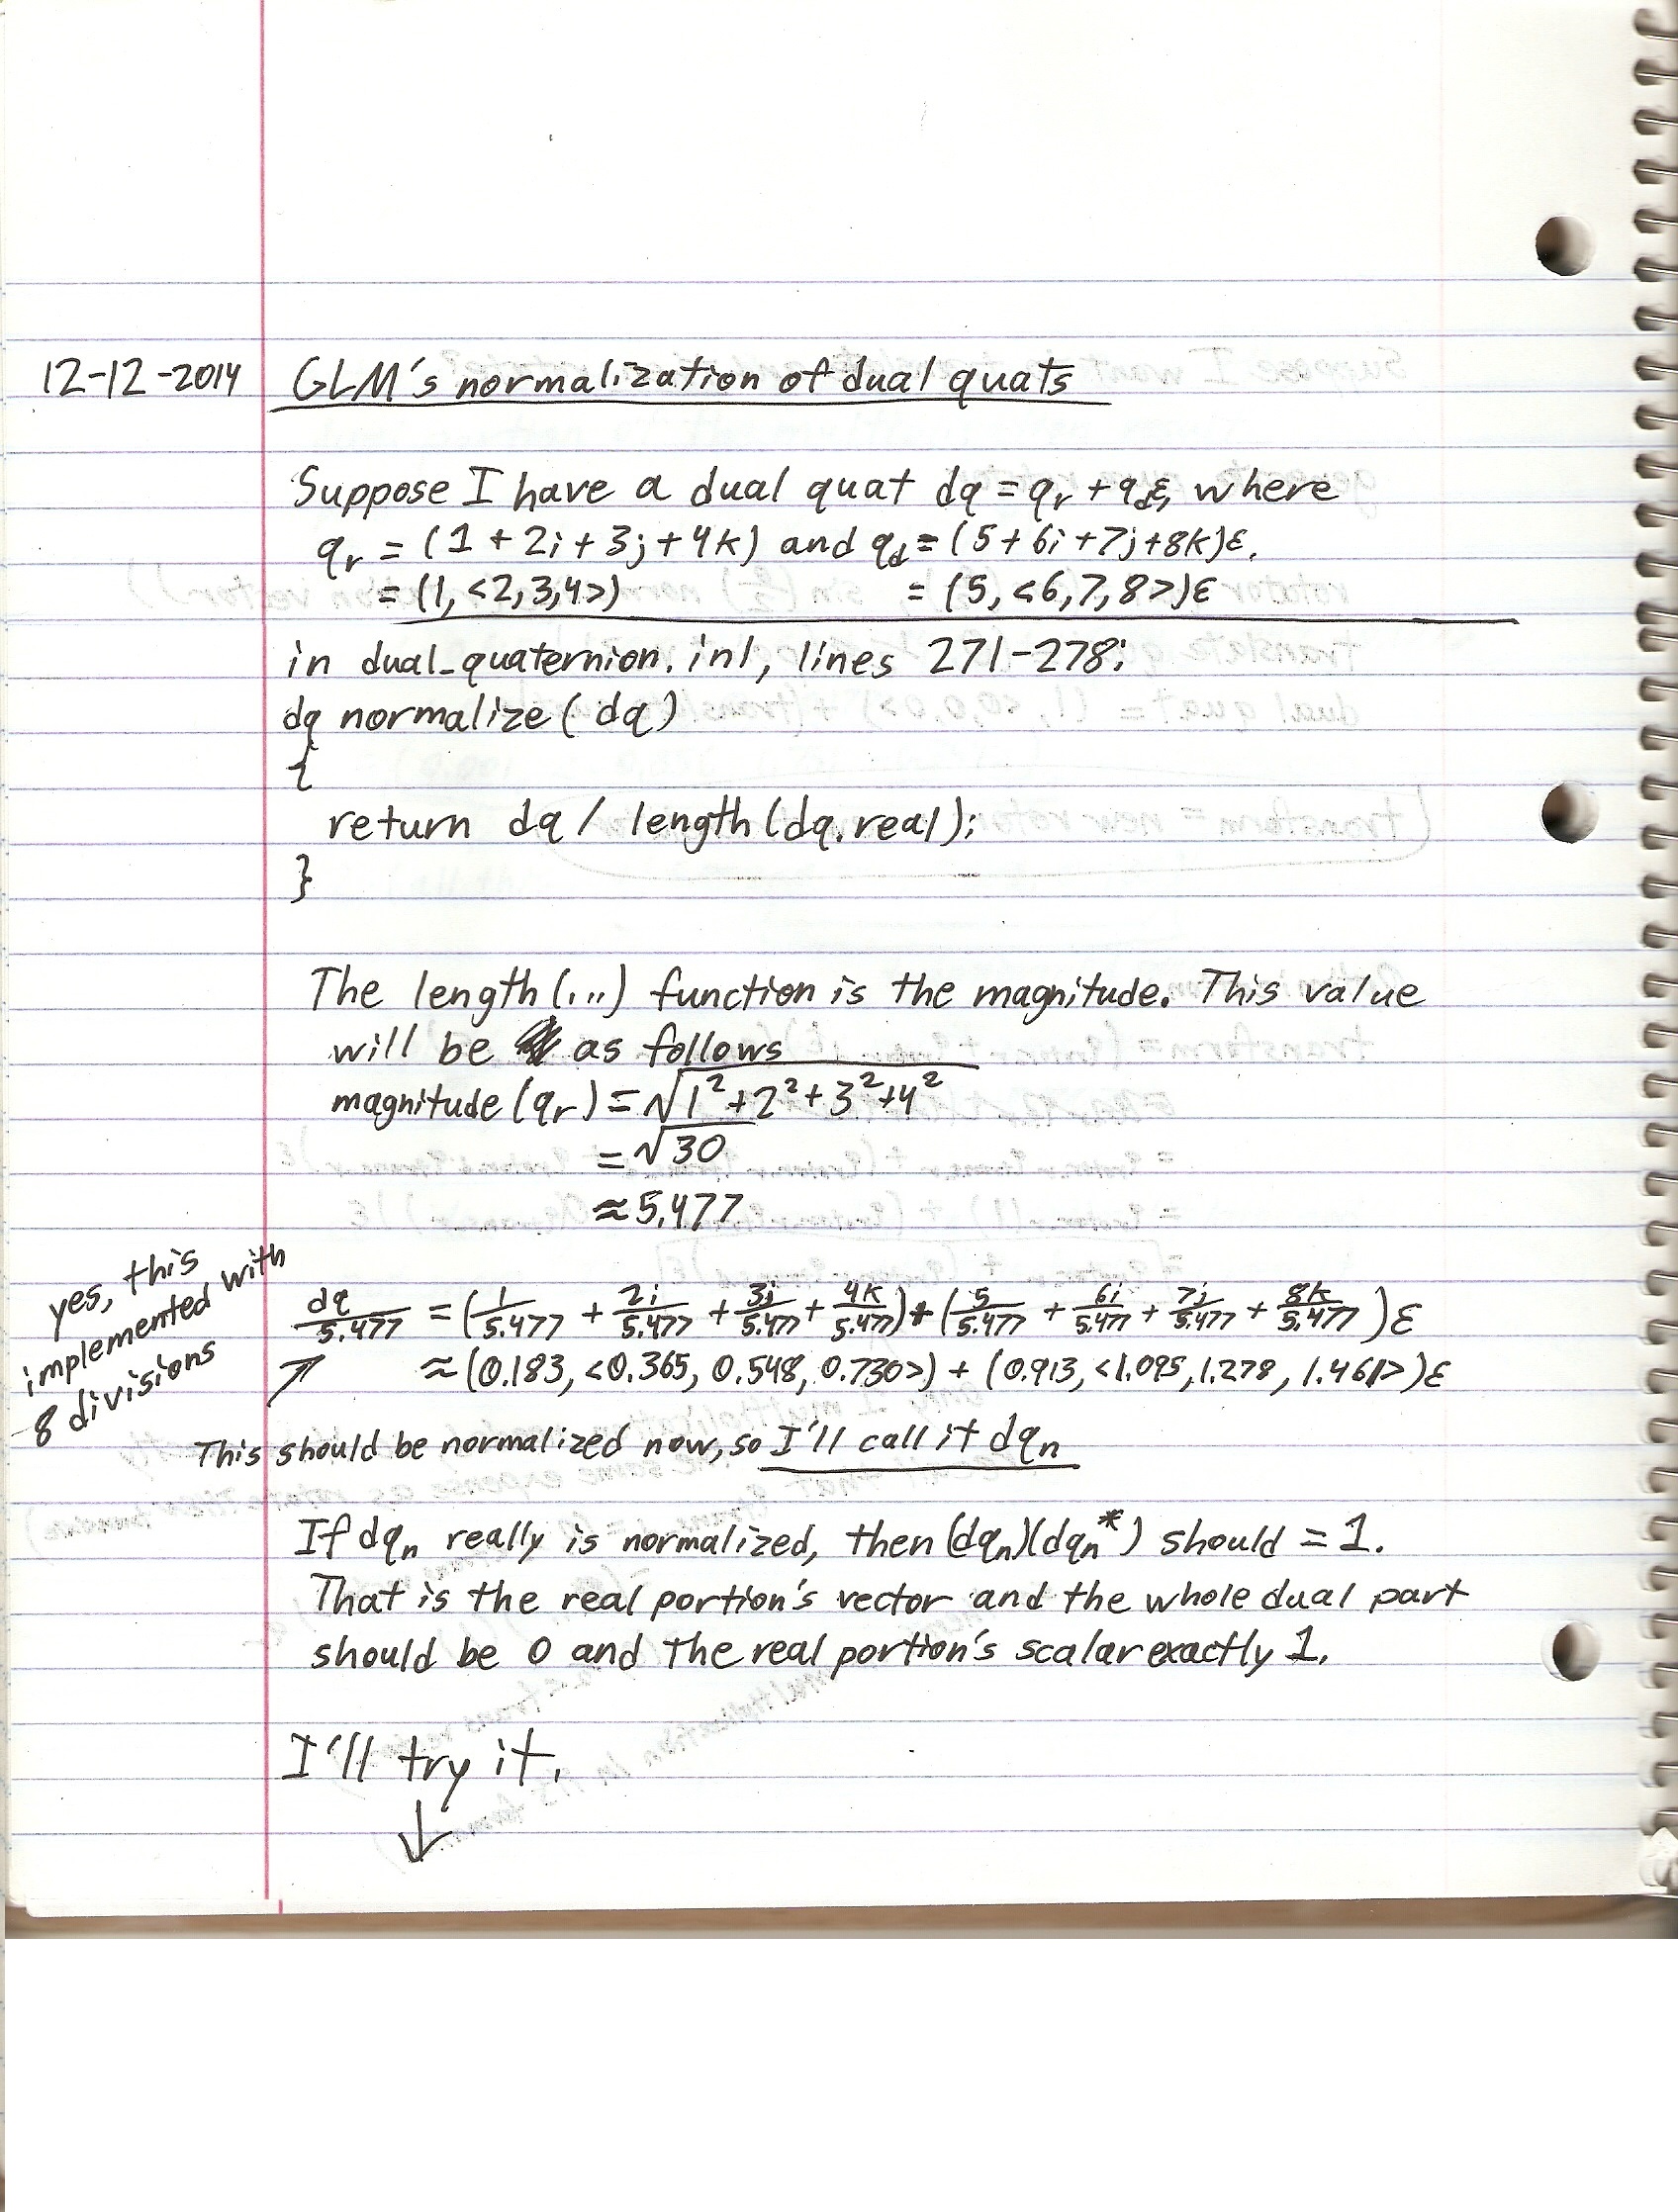 12-12-2014 GLM's normalization of dual quats
Suppose I have a dual quat dq = qr + qdε, where
qr = (1 + 2i + 3j + 4k) and qd = (5 + 6i + 7j + 8k)ε.
= (1, <2,3,4>) = (5, <6,7,8>)ε
in dual_quaternion.inl, lines 271-278:
dq normalize(dq)
{
return dq / length(dq.real);
}
The length(...) function is the magnitude. This value
will be as follows
magnitude(qr) = √1²+2²+3²+4²
= √30
≈ 5.477
yes, this
implemented with
8 divisions
dq/5.477 = (1/5.477 + 2i/5.477 + 3j/5.477 + 4k/5.477) + (5/5.477 + 6i/5.477 + 7j/5.477 + 8k/5.477)ε
≈ (0.183, <0.365, 0.548, 0.730>) + (0.913, <1.095, 1.278, 1.461>)ε
This should be normalized now, so I'll call it dqn
If dqn really is normalized, then (dqn)(dqn*) should = 1.
That is the real portion's vector and the whole dual part
should be 0 and the real portion's scalar exactly 1.
I'll try it.
↓